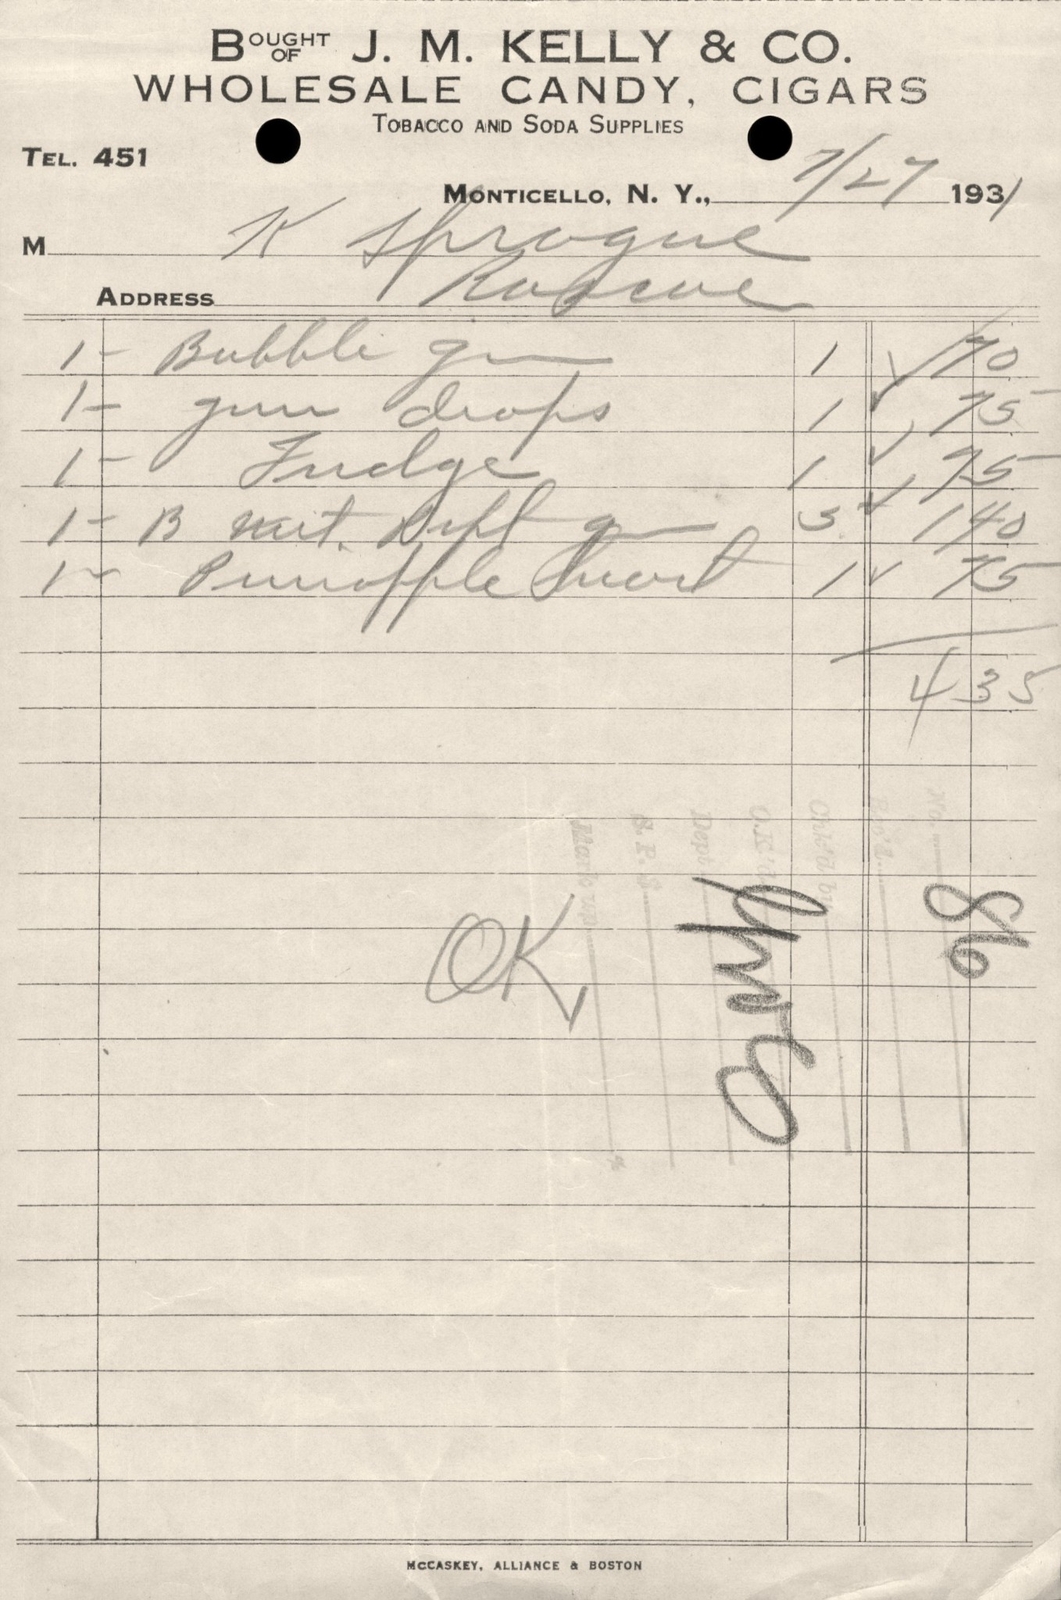 BOUGHT OF J. M. KELLY & CO.
WHOLESALE CANDY, CIGARS
TOBACCO AND SODA SUPPLIES
TEL. 451
MONTICELLO, N. Y., 7/27 1931
M K Sprague
ADDRESS Roscoe
1- Bubble gum 1 70
1- gum drops 1 75
1- Fudge 1 75
1- B nut. gum 3 140
1- Pineapple 1 75
435
No.
Dept
OK
86
MCCASKEY, ALLIANCE & BOSTON